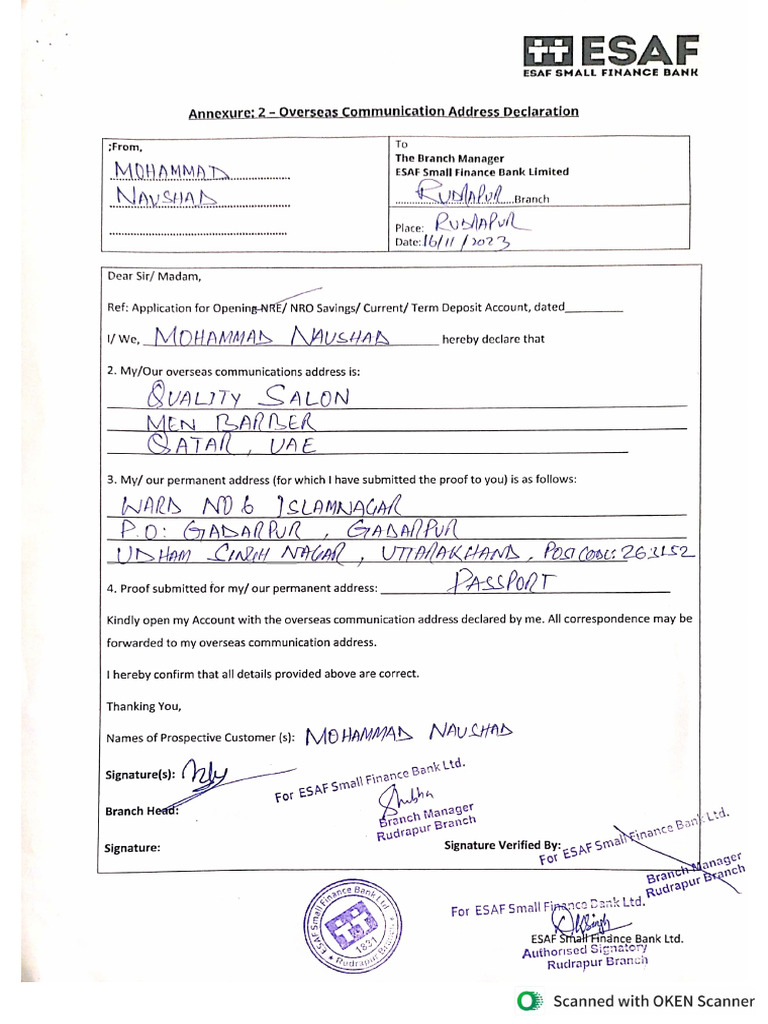 ESAF
ESAF SMALL FINANCE BANK
Annexure: 2 – Overseas Communication Address Declaration
;From,
MOHAMMAD
NAUSHAD
To
The Branch Manager
ESAF Small Finance Bank Limited
RUDRAPUR Branch
Place: RUDRAPUR
Date: 16/11/2023
Dear Sir/ Madam,
Ref: Application for Opening NRE/ NRO Savings/ Current/ Term Deposit Account, dated_________
I/ We, MOHAMMAD NAUSHAD hereby declare that
2. My/Our overseas communications address is:
QUALITY SALON
MEN BARBER
QATAR, UAE
3. My/ our permanent address (for which I have submitted the proof to you) is as follows:
WARD NO 6 ISLAMNAGAR
P.O: GADARPUR, GADARPUR
UDHAM SINGH NAGAR, UTTARAKHAND, POST CODE: 263152
4. Proof submitted for my/ our permanent address: PASSPORT
Kindly open my Account with the overseas communication address declared by me. All correspondence may be
forwarded to my overseas communication address.
I hereby confirm that all details provided above are correct.
Thanking You,
Names of Prospective Customer (s): MOHAMMAD NAUSHAD
Signature(s):
For ESAF Small Finance Bank Ltd.
Shubha
Branch Manager
Rudrapur Branch
Branch Head:
Signature:
Signature Verified By:
For ESAF Small Finance Bank Ltd.
Branch Manager
Rudrapur Branch
For ESAF Small Finance Bank Ltd.
ESAF Small Finance Bank Ltd.
Authorised Signatory
Rudrapur Branch
ESAF Small Finance Bank Ltd.
1831
★ Rudrapur Branch ★
Scanned with OKEN Scanner